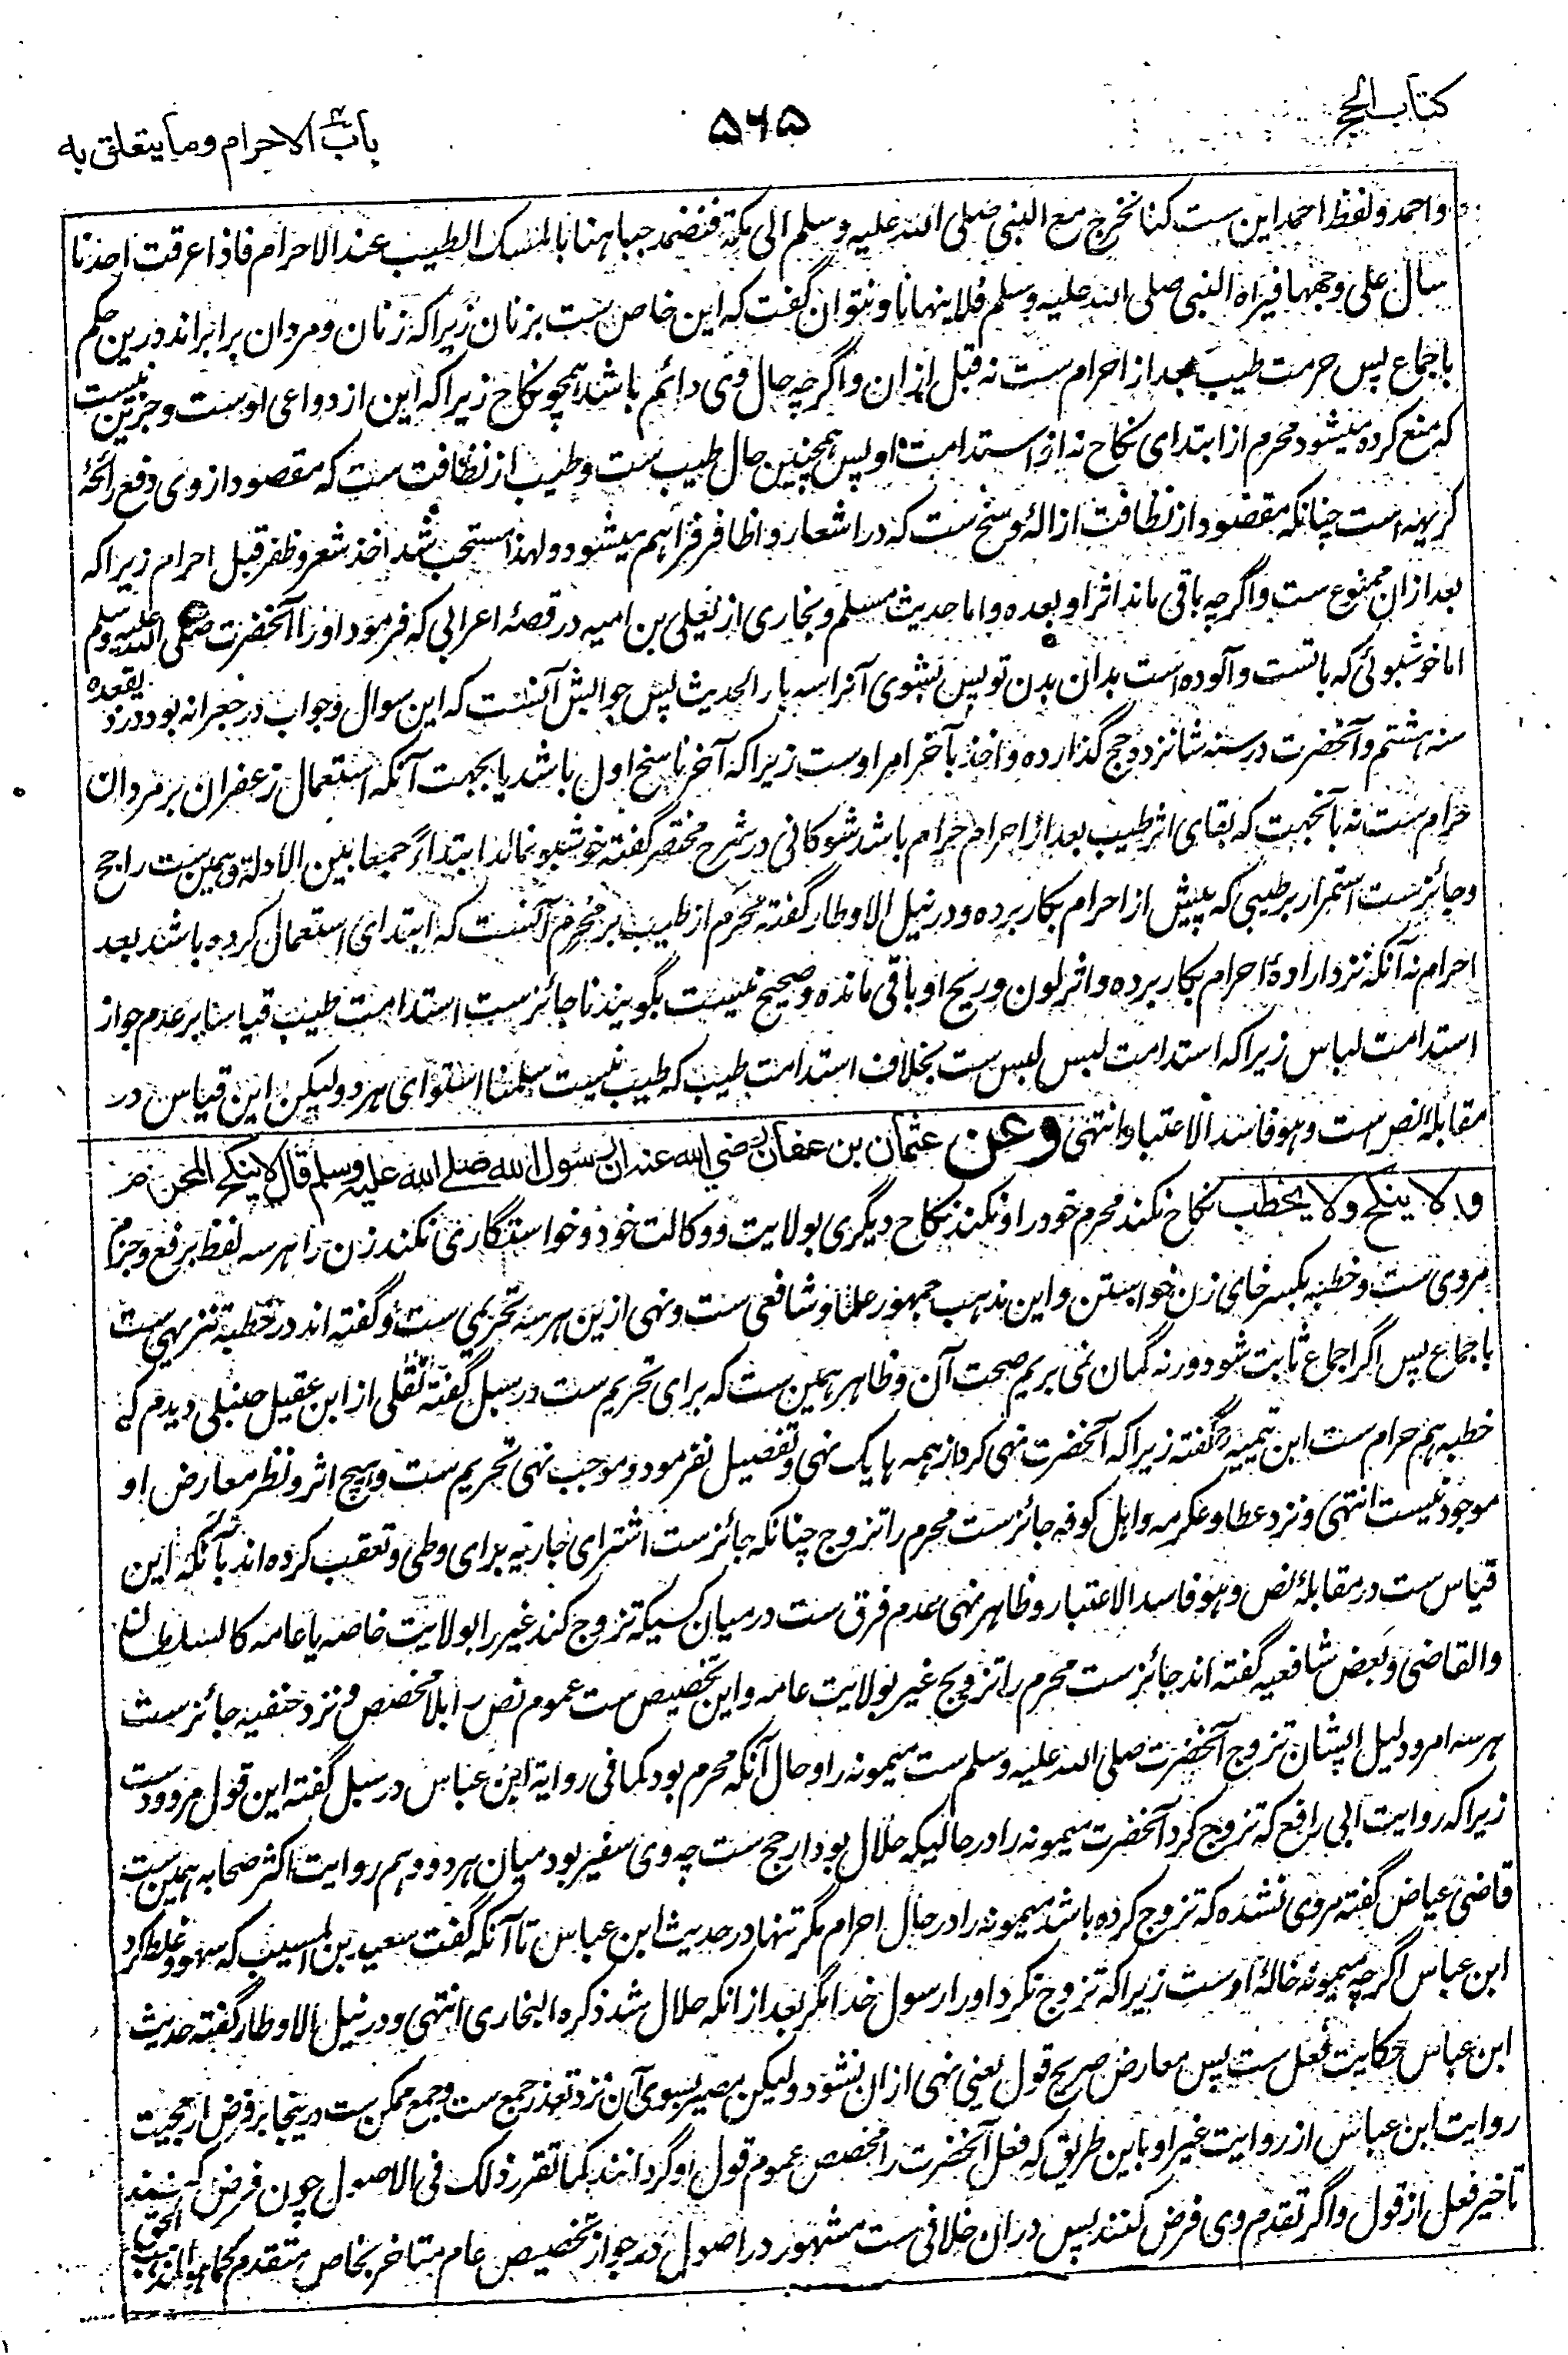 کتاب الحج
۵۶۵
باب الاحرام وما يتعلق به
واحمد ولفظ احمد این ست کنا نخرج مع النبی صلی الله علیه وسلم الی مکة فنضمد جباهنا بالمسک الطیب عند الاحرام فاذا عرقت احدنا
سال علی وجهها فیراه النبی صلی الله علیه وسلم فلا ینهانا ونتوان گفت که این خاص ست بزنان زیراکه زنان ومردان برابراند درین حکم
باجماع پس حرمت طیب بعد از احرام ست نه قبل ازان واگرچه حال وی دائم باشد همچو نکاح زیراکه این از دواعی اوست وجزین نیست
که منع کرده میشود محرم از ابتدای نکاح نه از استدامت او پس همچنین حال طیب ست وطیب از نظافت ست که مقصود از وی دفع رائحهٔ
کریهه است چنانکه مقصود از نظافت ازالهٔ وسخ ست که در اشعار واظافر فراهم میشود ولهذا مستحب شد اخذ شعر وظفر قبل احرام زیراکه
بعد ازان ممنوع ست واگرچه باقی ماند اثر او بعده واما حدیث مسلم وبخاری از یعلی بن امیه در قصهٔ اعرابی که فرمود اورا آنحضرت صلی الله علیه وسلم
اما خوشبوئی که باتست وآلوده است بدان بدن تو پس بشوی آنرا سه بار الحدیث پس جوابش آنست که این سوال وجواب در جعرانه بود در ذیقعده
سنه هشتم وآنحضرت در سنه شانزد وحج گذارده واخذ بآخر امر اوست زیراکه آخر ناسخ اول باشد یا بجهت آنکه استعمال زعفران بر مردان
حرام ست نه بآنجهت که بقای اثر طیب بعد از احرام حرام باشد شوکانی در شرح مختصر گفته خوشبو نمالد ابتداءً جمعا بین الادلة وهمین ست راجح
وجائزست استمرار برطیبی که پیش از احرام بکار برده ودر نیل الاوطار گفته محرم از طیب بر محرم آنست که ابتدای استعمال کرده باشد بعد
احرام نه آنکه نزد ارادهٔ احرام بکار برده واثر لون وریح او باقی مانده وصحیح نیست بگویند ناجائزست استدامت طیب قیاسا بر عدم جواز
استدامت لباس زیراکه استدامت لبس لبس ست بخلاف استدامت طیب که طیب نیست سلمنا استوای هر دو ولیکن این قیاس در
مقابلهٔ نص ست وهو فاسد الاعتبار وانتهی وعن عثمان بن عفان رضی الله عنه ان رسول الله صلی الله علیه وسلم قال لا ینکح المحرم
ولا ینکح ولا یخطب نکاح نکند محرم خود را ونکند نکاح دیگری بولایت ووکالت خود وخواستگاری نکند زن را هر سه لفظ برفع وجزم
مروی ست وخطبه بکسر خای زن خواستن واین مذهب جمهور علما وشافعی ست ونهی ازین هر سه تحریمی ست وگفته اند در خطبه تنزیهی ست
باجماع پس اگر اجماع ثابت شود ورنه گمان نمی بریم صحت آن وظاهر همین ست که برای تحریم ست در سبل گفته نقلی از ابن عقیل حنبلی دیدم که
خطبه هم حرام ست ابن تیمیه گفته زیراکه آنحضرت نهی کرد از همه بایک نهی وتفصیل نفرمود وموجب نهی تحریم ست وهیچ اثر ونظر معارض او
موجود نیست انتهی ونزد عطا وعکرمه واهل کوفه جائزست محرم را تزوج چنانکه جائزست اشترای جاریه برای وطی وتعقب کرده اند بآنکه این
قیاس ست در مقابلهٔ نص وهو فاسد الاعتبار وظاهر نهی عدم فرق ست درمیان کسیکه تزوج کند غیر را بولایت خاصه یا عامه کالسلطان
والقاضی وبعض شافعیه گفته اند جائزست محرم را تزویج غیر بولایت عامه واین تخصیص ست عموم نص را بلا مخصص ونزد حنفیه جائزست
هر سه امر ودلیل ایشان تزوج آنحضرت صلی الله علیه وسلم ست میمونه را وحال آنکه محرم بود کما فی روایة ابن عباس در سبل گفته این قول مردودست
زیراکه روایت ابی رافع که تزوج کرد آنحضرت میمونه را در حالیکه حلال بود ارجح ست چه وی سفیر بود میان هر دو وهم روایت اکثر صحابه همین ست
قاضی عیاض گفته مروی نشده که تزوج کرده باشد میمونه را در حال احرام مگر تنها در حدیث ابن عباس تا آنکه گفت سعید بن المسیب که سهو وغلط کرد
ابن عباس اگرچه میمونه خالهٔ اوست زیراکه تزوج نکرد اورا رسول خدا مگر بعد ازانکه حلال شد ذکره البخاری انتهی ودر نیل الاوطار گفته حدیث
ابن عباس حکایت فعل ست پس معارض صریح قول یعنی نهی ازان نشود ولیکن مصیر بسوی آن نزد تعذر جمع ست وجمع ممکن ست درینجا بر فرض ارجحیت
روایت ابن عباس از روایت غیر او باین طریق که فعل آنحضرت را مخصص عموم قول او گردانند کما تقرر ذلک فی الاصول چون فرض کنند
تاخیر فعل از قول واگر تقدم وی فرض کنند پس دران خلافی ست مشهور در اصول در جواز تخصیص عام متاخر بخاص متقدم کما هو المذهب الحق